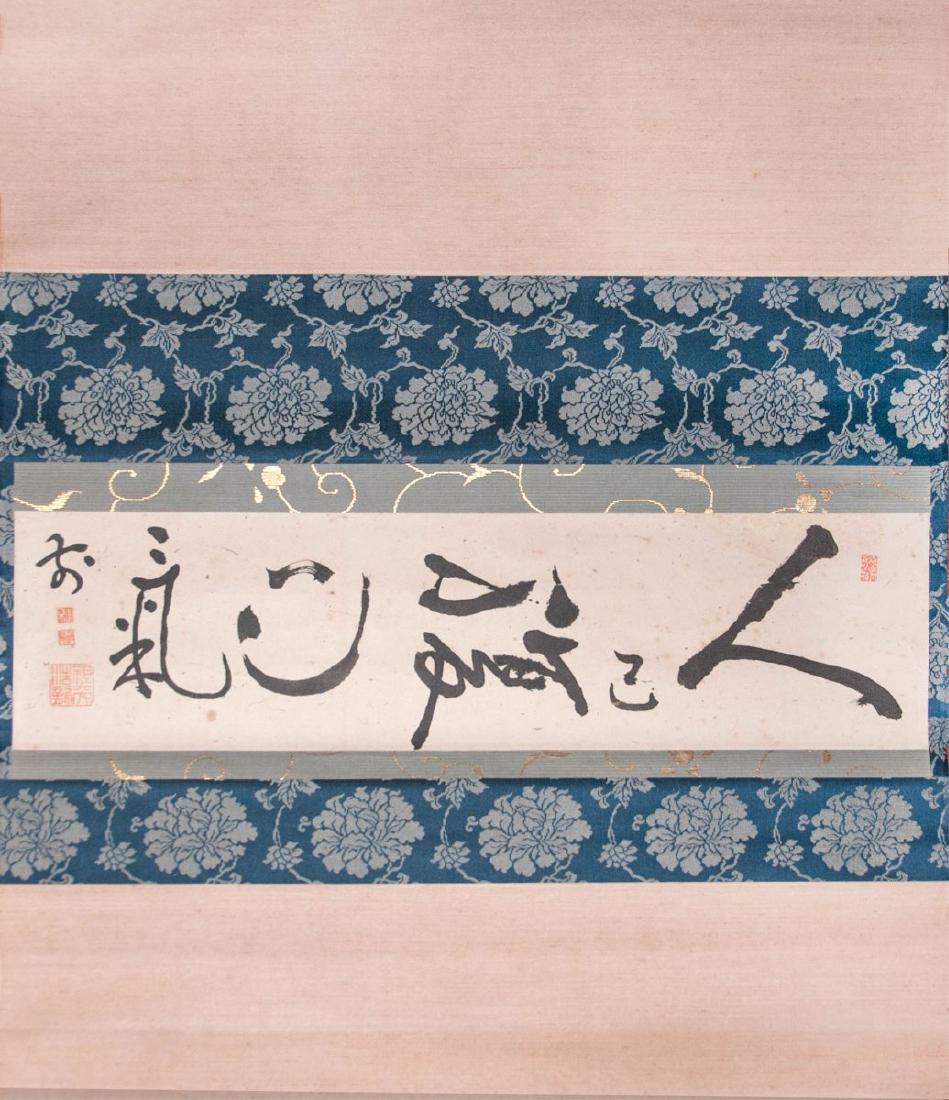 人己腹心氣